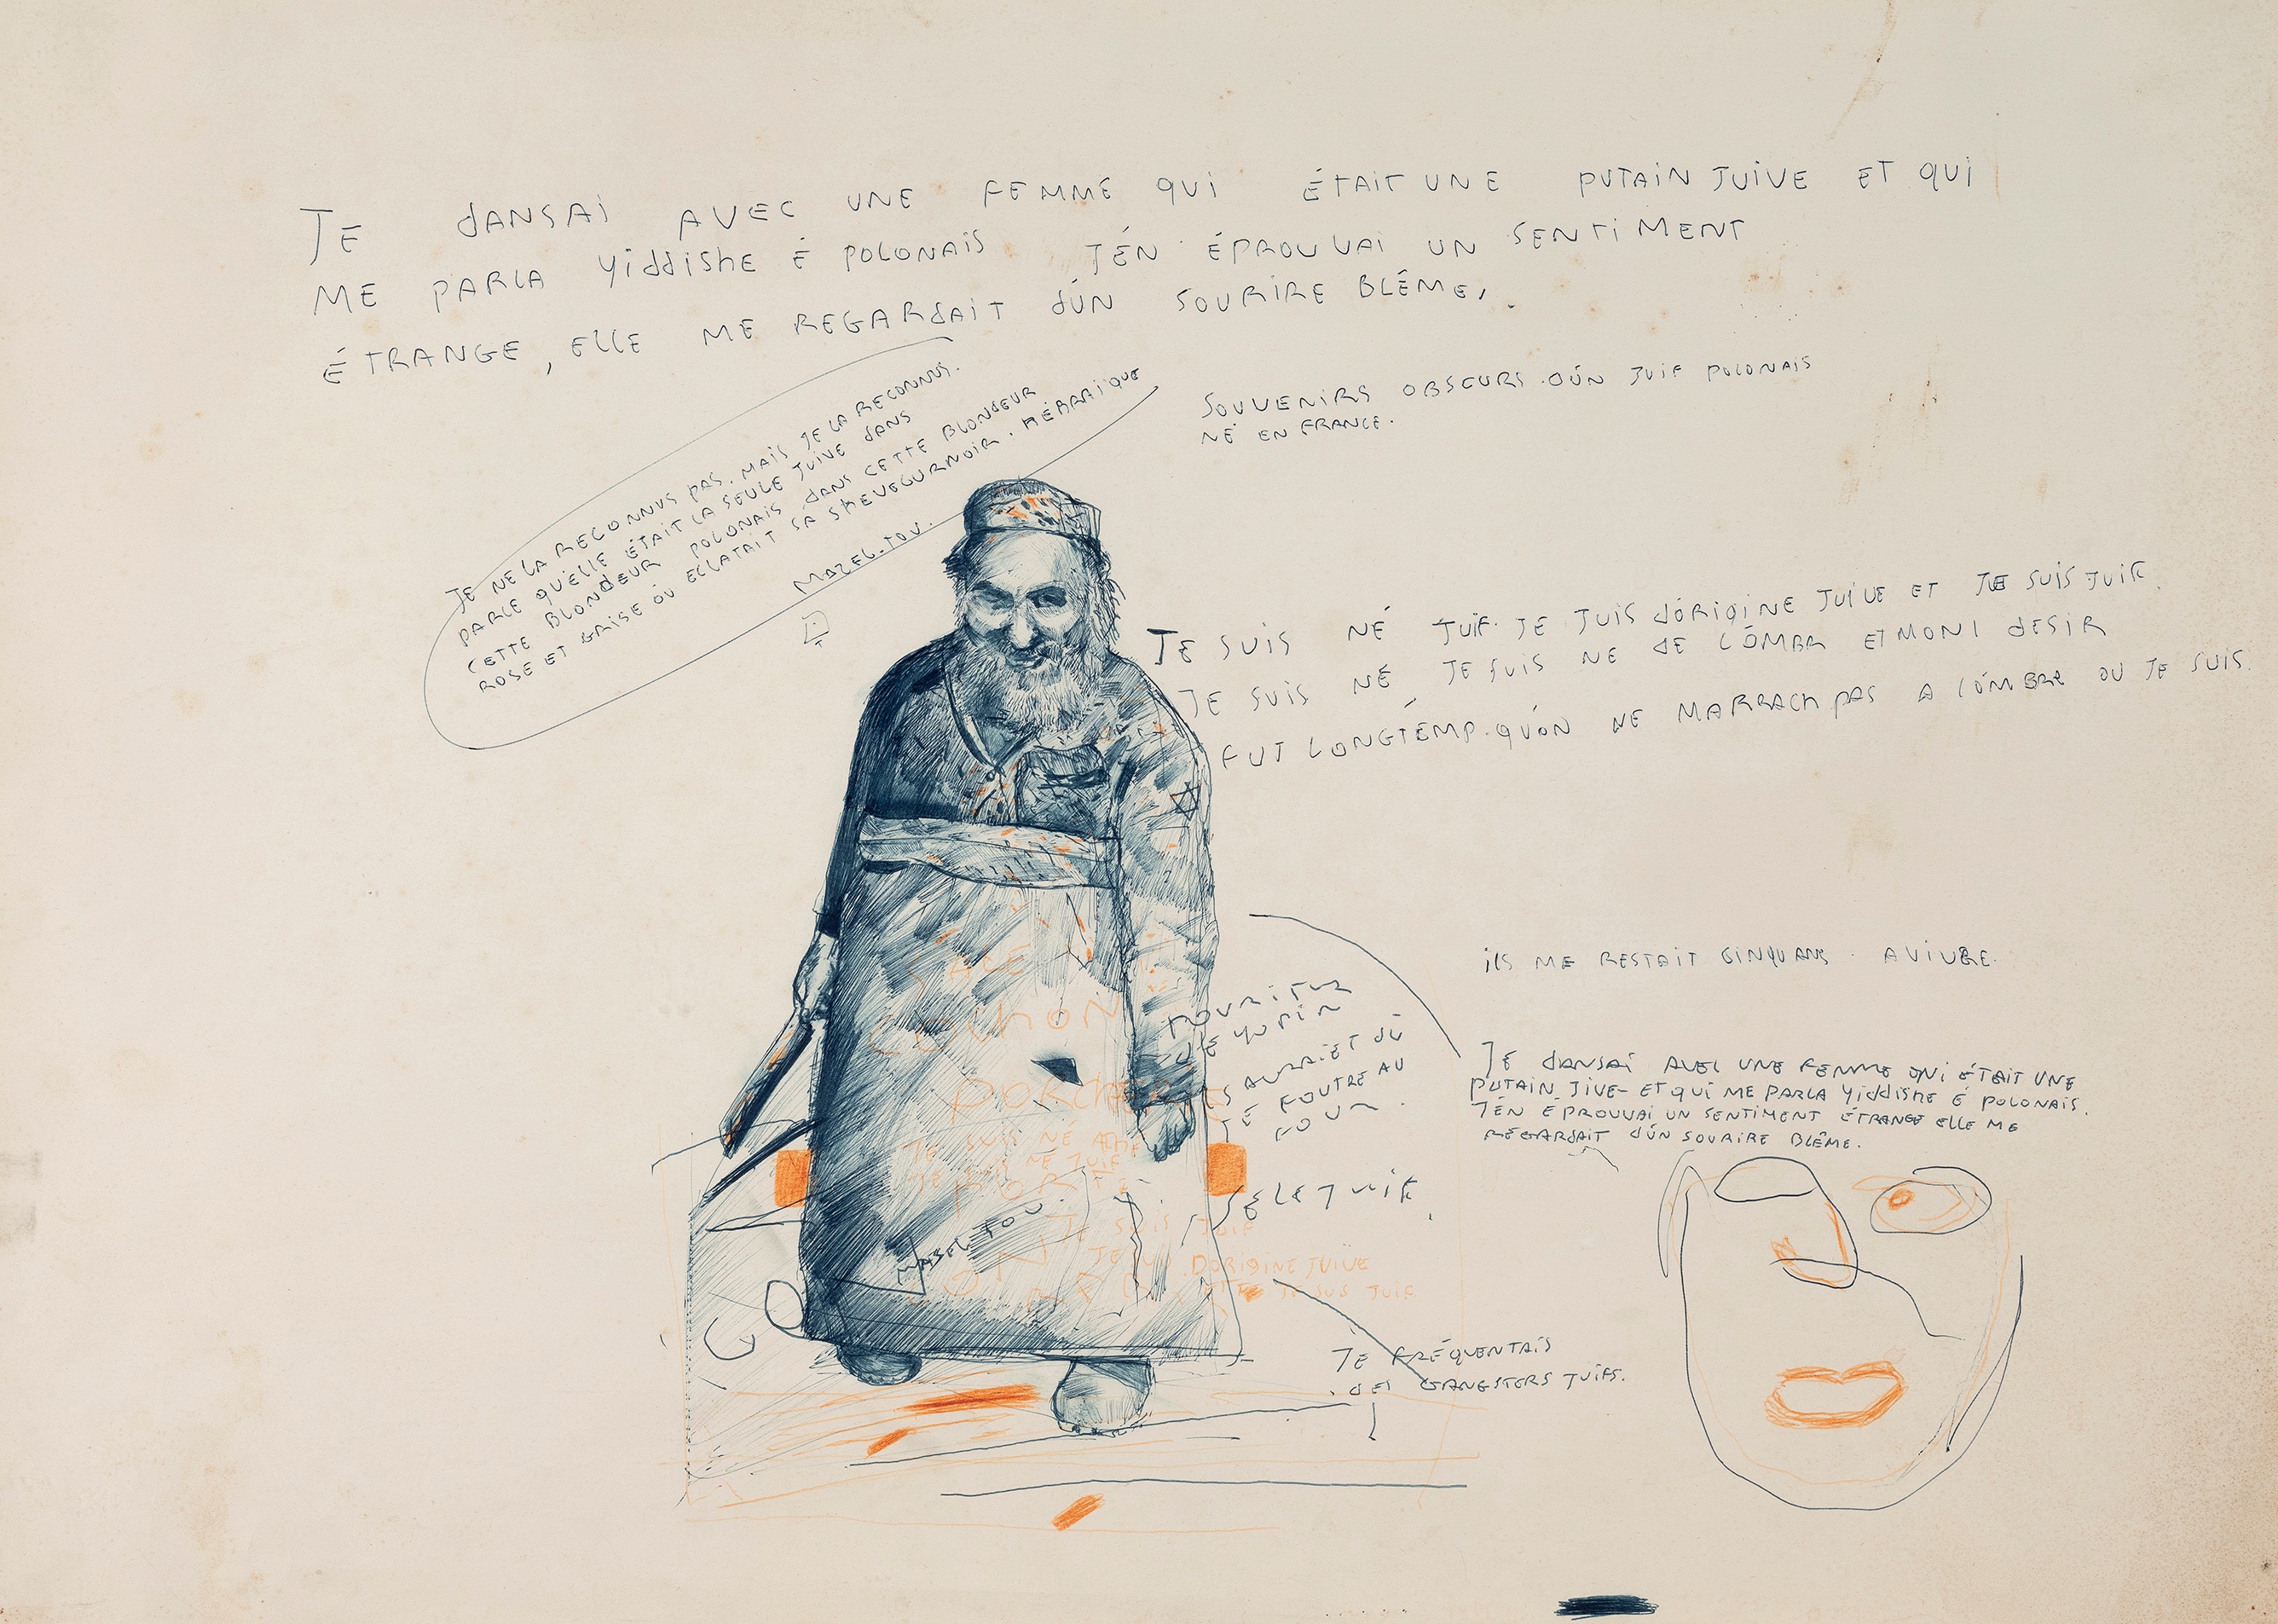 JE dANSAi AVEC UNE FEMME QUi ÉTAIT UNE PUTAIN JUiVE ET QUI
ME PARLA YiddisHE É POLONAiS JÉN ÉPROUVAi UN SENTiMENT
ÉTRANGE, ELLE ME REGARdAiT dÚN SOURIRE BLÊME,.
JE NE LA RECONNUS PAS. MAiS JE LA RECONNUS.
PARLE QUÉLLE ÉTAIT LA SEULE JUiVE dANS
CETTE BLONdEUR POLONAiS dANS CETTE BLONdEUR
ROSE ET GRiSE OÙ ECLATAiT SA SHEVEURNOIR. HÉBRAiQUE
MAZEL.TOV.
SOUVENiRS OBSCURS dÚN JUiF POLONAiS
NÉ EN FRANCE.
JE SUiS NÉ JUiF. JE JUiS dÓRiGiNE JUiVE ET JE SUiS JUiF.
JE SUiS NÉ, JE SUiS NE dE LÓMBR ET MONI dESiR
FUT LONGTÉMP. QUÓN NE MARRACH PAS A LÓMBRE OU JE SUIS.
iLS ME RESTAiT CINQUANS. A ViVRE.
POURiTUR
dE YOUPIN
AURAIET dÛ
TÉ FOUTRE AU
FOUR.
JE dANSAi AVEC UNE FEMME QUi ÉTAIT UNE
PUTAIN JIVE- ET QUI ME PARLA YiddisHE É POLONAIS.
JÉN ÉPROUVAI UN SENTIMENT ÉTRANGE ELLE ME
REGARdAIT dÚN SOURIRE BLÊME.
SALE
COCHON
PORC
JE SUIS NÉ
JE SUIS NE JUIF
SALE JUIF.
MASEL TOV.
JE SUIS JUIF
JE SUIS DORIGINE JUIVE
ET JE SUS JUIF
JE FRÉQUENTAIS
dES GANGSTERS JUIFS.